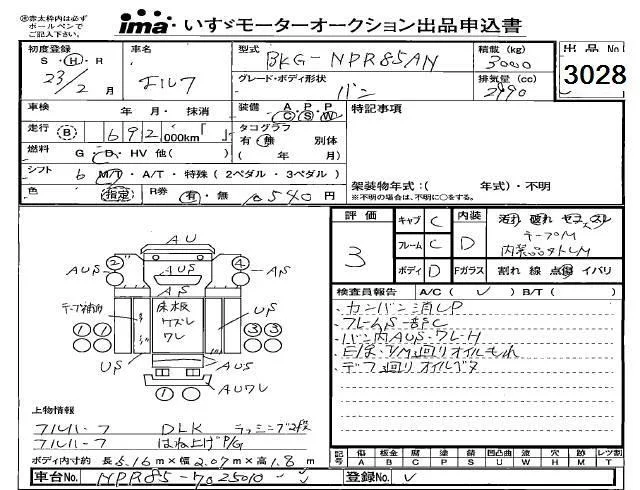 ㊟赤太枠内は必ず
ボールペンで
ご記入下さい。
ima いすゞモーターオークション出品申込書
初度登録 車名 型式 BKG-NPR85AN 積載 (kg) 3000 出品No.
S・H・R 23/2 月 エルフ グレード・ボディ形状 バン 排気量 (cc) 2990 3028
車検 年 月・ 抹消 装備 A・P・P C S W 特記事項
走行 B 692 000km「 」 タコグラフ 有・無 別体
燃料 G・D・HV 他( ) ( 年 月)
シフト 6 M/T・A/T・特殊(2ペダル・3ペダル)
色 指定 R券 有・無 10540円 架装物年式:( 年式)・不明
※不明の場合は、不明に○をする。
評価 3 キャブ C 内装 D
フレーム C テープM
ボディ D Fガラス 割れ 線 点傷 イバリ
検査員報告 A/C( ✓ ) B/T( )
・カンバン消しP
・フレームS一部C
・バン内AUS・ワレ・H
・E/ほ・T/M回りオイルもれ
・デフ回りオイルジタ
AU
2 AUS AUS 4 AS
UP
テープ補修 床板 ケズレ ワレ
1 1 3 3
US UP
AUS
AUワレ
1
上物情報
フルハーフ DLK ラッシング2段
フルハーフ はね上げP/G
ボディ内寸約 長5.16m×幅2.07m×高1.8m
記号 傷 板金 腐 塗 錆 凹 凸凹曲 波 穴 跡 レツ割
A B C P S U W H M T
車台No. NPR85-7025010 登録No.